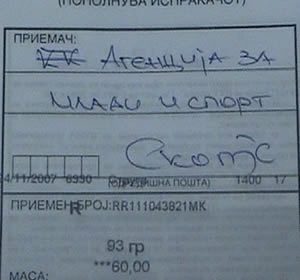 (ПОПОЛНУВА ИСПРАЌАЧОТ)
ПРИЕМАЧ:
Агенција за
млади и спорт
Скопје
4/11/2007 6330 Струга 1400 17
(ОДРЕДИШНА ПОШТА)
ПРИЕМЕН БРОЈ:RR111043821MK
R
93 гр
***60,00
МАСА: